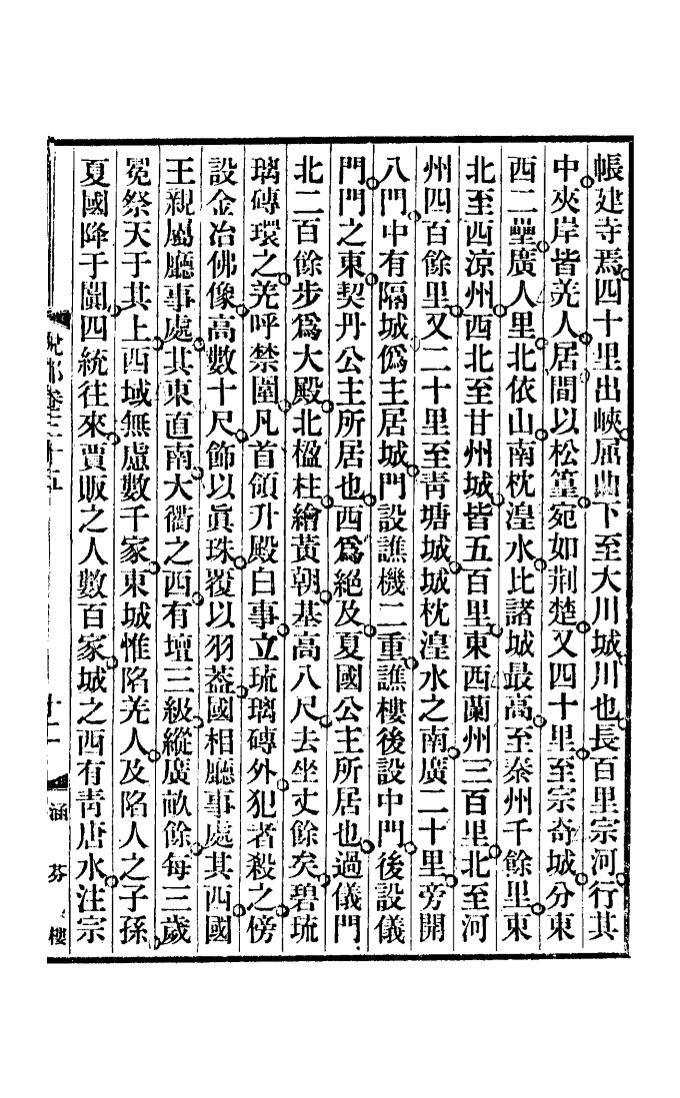 帳建寺焉四十里出峽屈曲下至大川城川也長百里宗河行其
中夾岸皆羌人居間以松篁宛如荆楚又四十里至宗奇城分東
西二壘廣人里北依山南枕湟水比諸城最高至秦州千餘里東
北至西涼州西北至甘州城皆五百里東西蘭州三百里北至河
州四百餘里又二十里至靑塘城城枕湟水之南廣二十里旁開
八門中有隔城僞主居城門設譙機二重譙樓後設中門後設儀
門門之東契丹公主所居也西爲絕及夏國公主所居也過儀門
北二百餘步爲大殿北楹柱繪黃朝基高八尺去坐丈餘矣碧琉
璃磚環之羌呼禁圍凡首領升殿白事立琉璃磚外犯者殺之傍
設金冶佛像高數十尺飾以眞珠覆以羽葢國相廳事處其西國
王親屬廳事處其東直南大衢之西有壇三級縱廣畝餘每三歲
冤祭天于其上西域無慮數千家東城惟陷羌人及陷人之子孫
夏國降于闐四統往來賈販之人數百家城之西有靑唐水注宗
說郛卷三十五
十一
涵芬樓